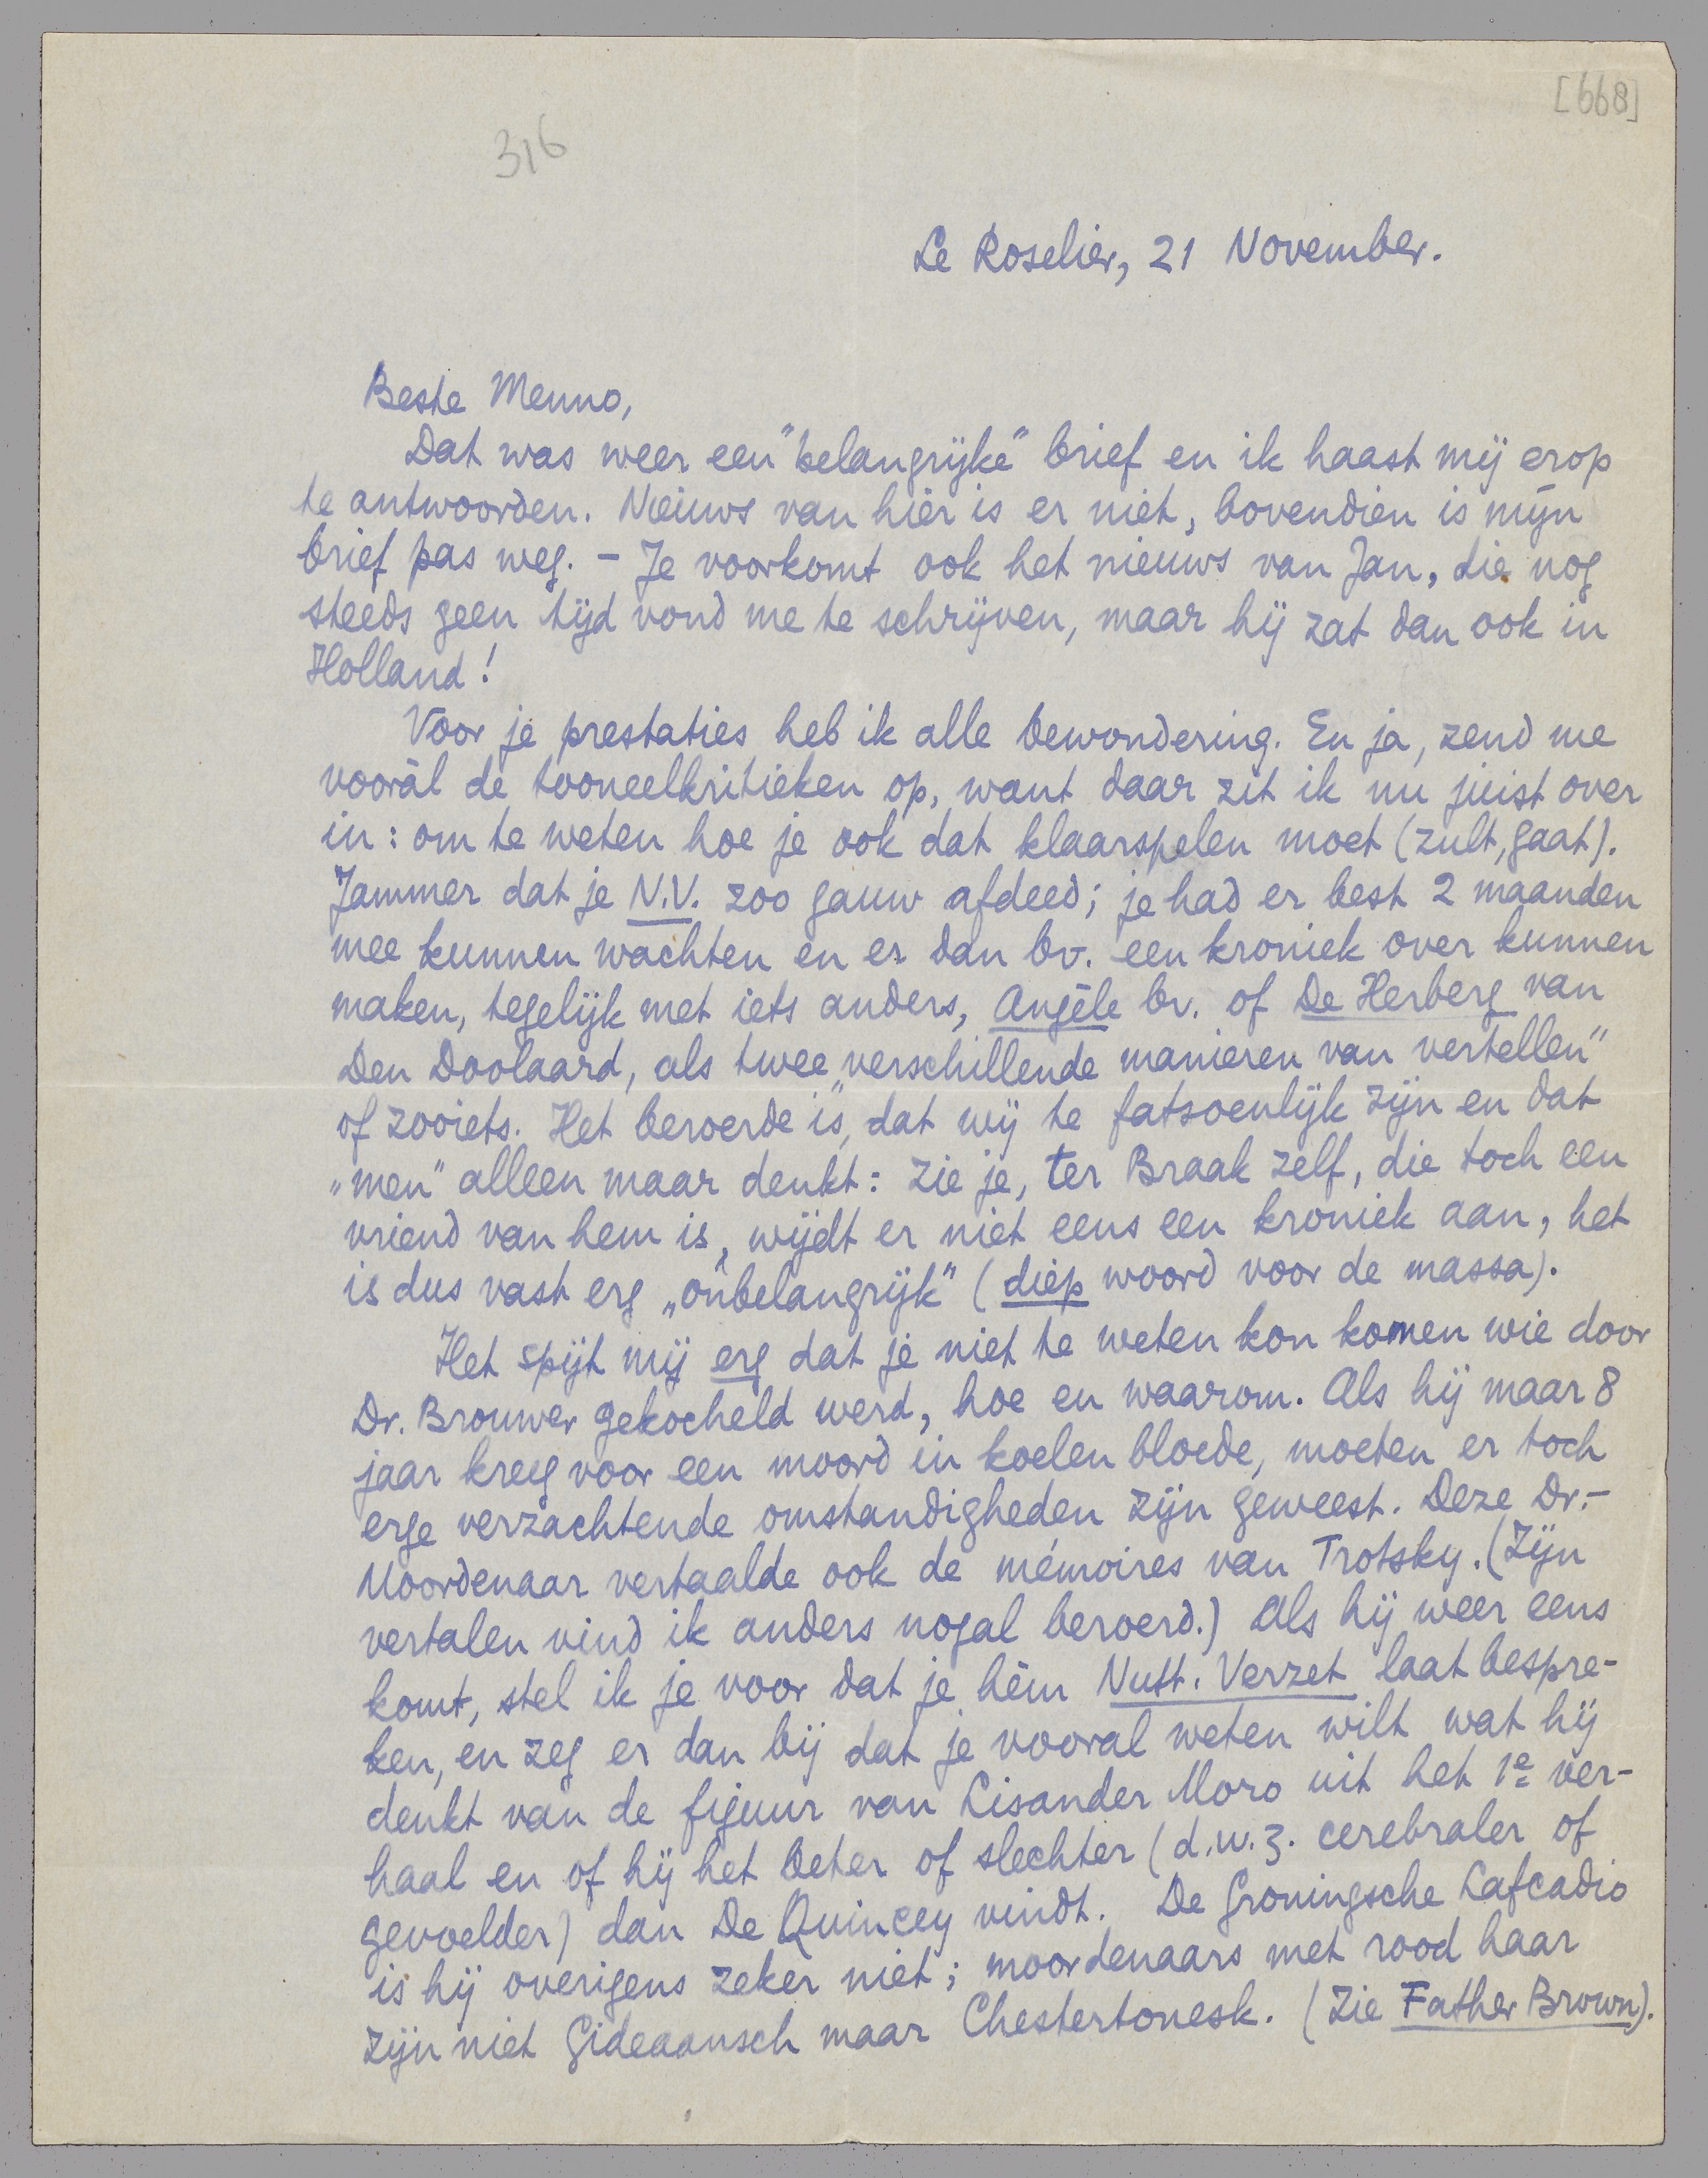 [668]
316
Le Roselier, 21 November.
Beste Menno,
Dat was weer een "belangrijke" brief en ik haast mij erop
te antwoorden. Nieuws van hier is er niet, bovendien is mijn
brief pas weg. – Je voorkomt ook het nieuws van Jan, die nog
steeds geen tijd vond me te schrijven, maar hij zat dan ook in
Holland!
Voor je prestaties heb ik alle bewondering. En ja, zend me
vooràl de tooneelkritieken op, want daar zit ik nu juist over
in: om te weten hoe je ook dat klaarspelen moet (zult, gaat).
Jammer dat je N.V. zoo gauw afdeed; je had er best 2 maanden
mee kunnen wachten en er dan bv. een kroniek over kunnen
maken, tegelijk met iets anders, Angèle bv. of De Herberg van
Den Doolaard, als twee „verschillende manieren van vertellen"
of zooiets. Het beroerde is, dat wij te fatsoenlijk zijn en dat
„men" alleen maar denkt: zie je, ter Braak zelf, die toch een
vriend van hem is, wijdt er niet eens een kroniek aan, het
is dus vast erg „onbelangrijk" (diep woord voor de massa).
Het spijt mij erg dat je niet te weten kon komen wie door
Dr. Brouwer gekocheld werd, hoe en waarom. Als hij maar 8
jaar kreeg voor een moord in koelen bloede, moeten er toch
erge verzachtende omstandigheden zijn geweest. Deze Dr.-
Moordenaar vertaalde ook de mémoires van Trotsky. (Zijn
vertalen vind ik anders nogal beroerd.) Als hij weer eens
komt, stel ik je voor dat je hèm Nutt. Verzet laat bespre-
ken, en zeg er dan bij dat je vooral weten wilt wat hij
denkt van de figuur van Lisander Moro uit het 1e ver-
haal en of hij het beter of slechter (d.w.z. cerebraler of
gevoelder) dan De Quincey vindt. De Groningsche Lafcadio
is hij overigens zeker niet; moordenaars met rood haar
zijn niet Gideaansch maar Chestertonesk. (Zie Father Brown).